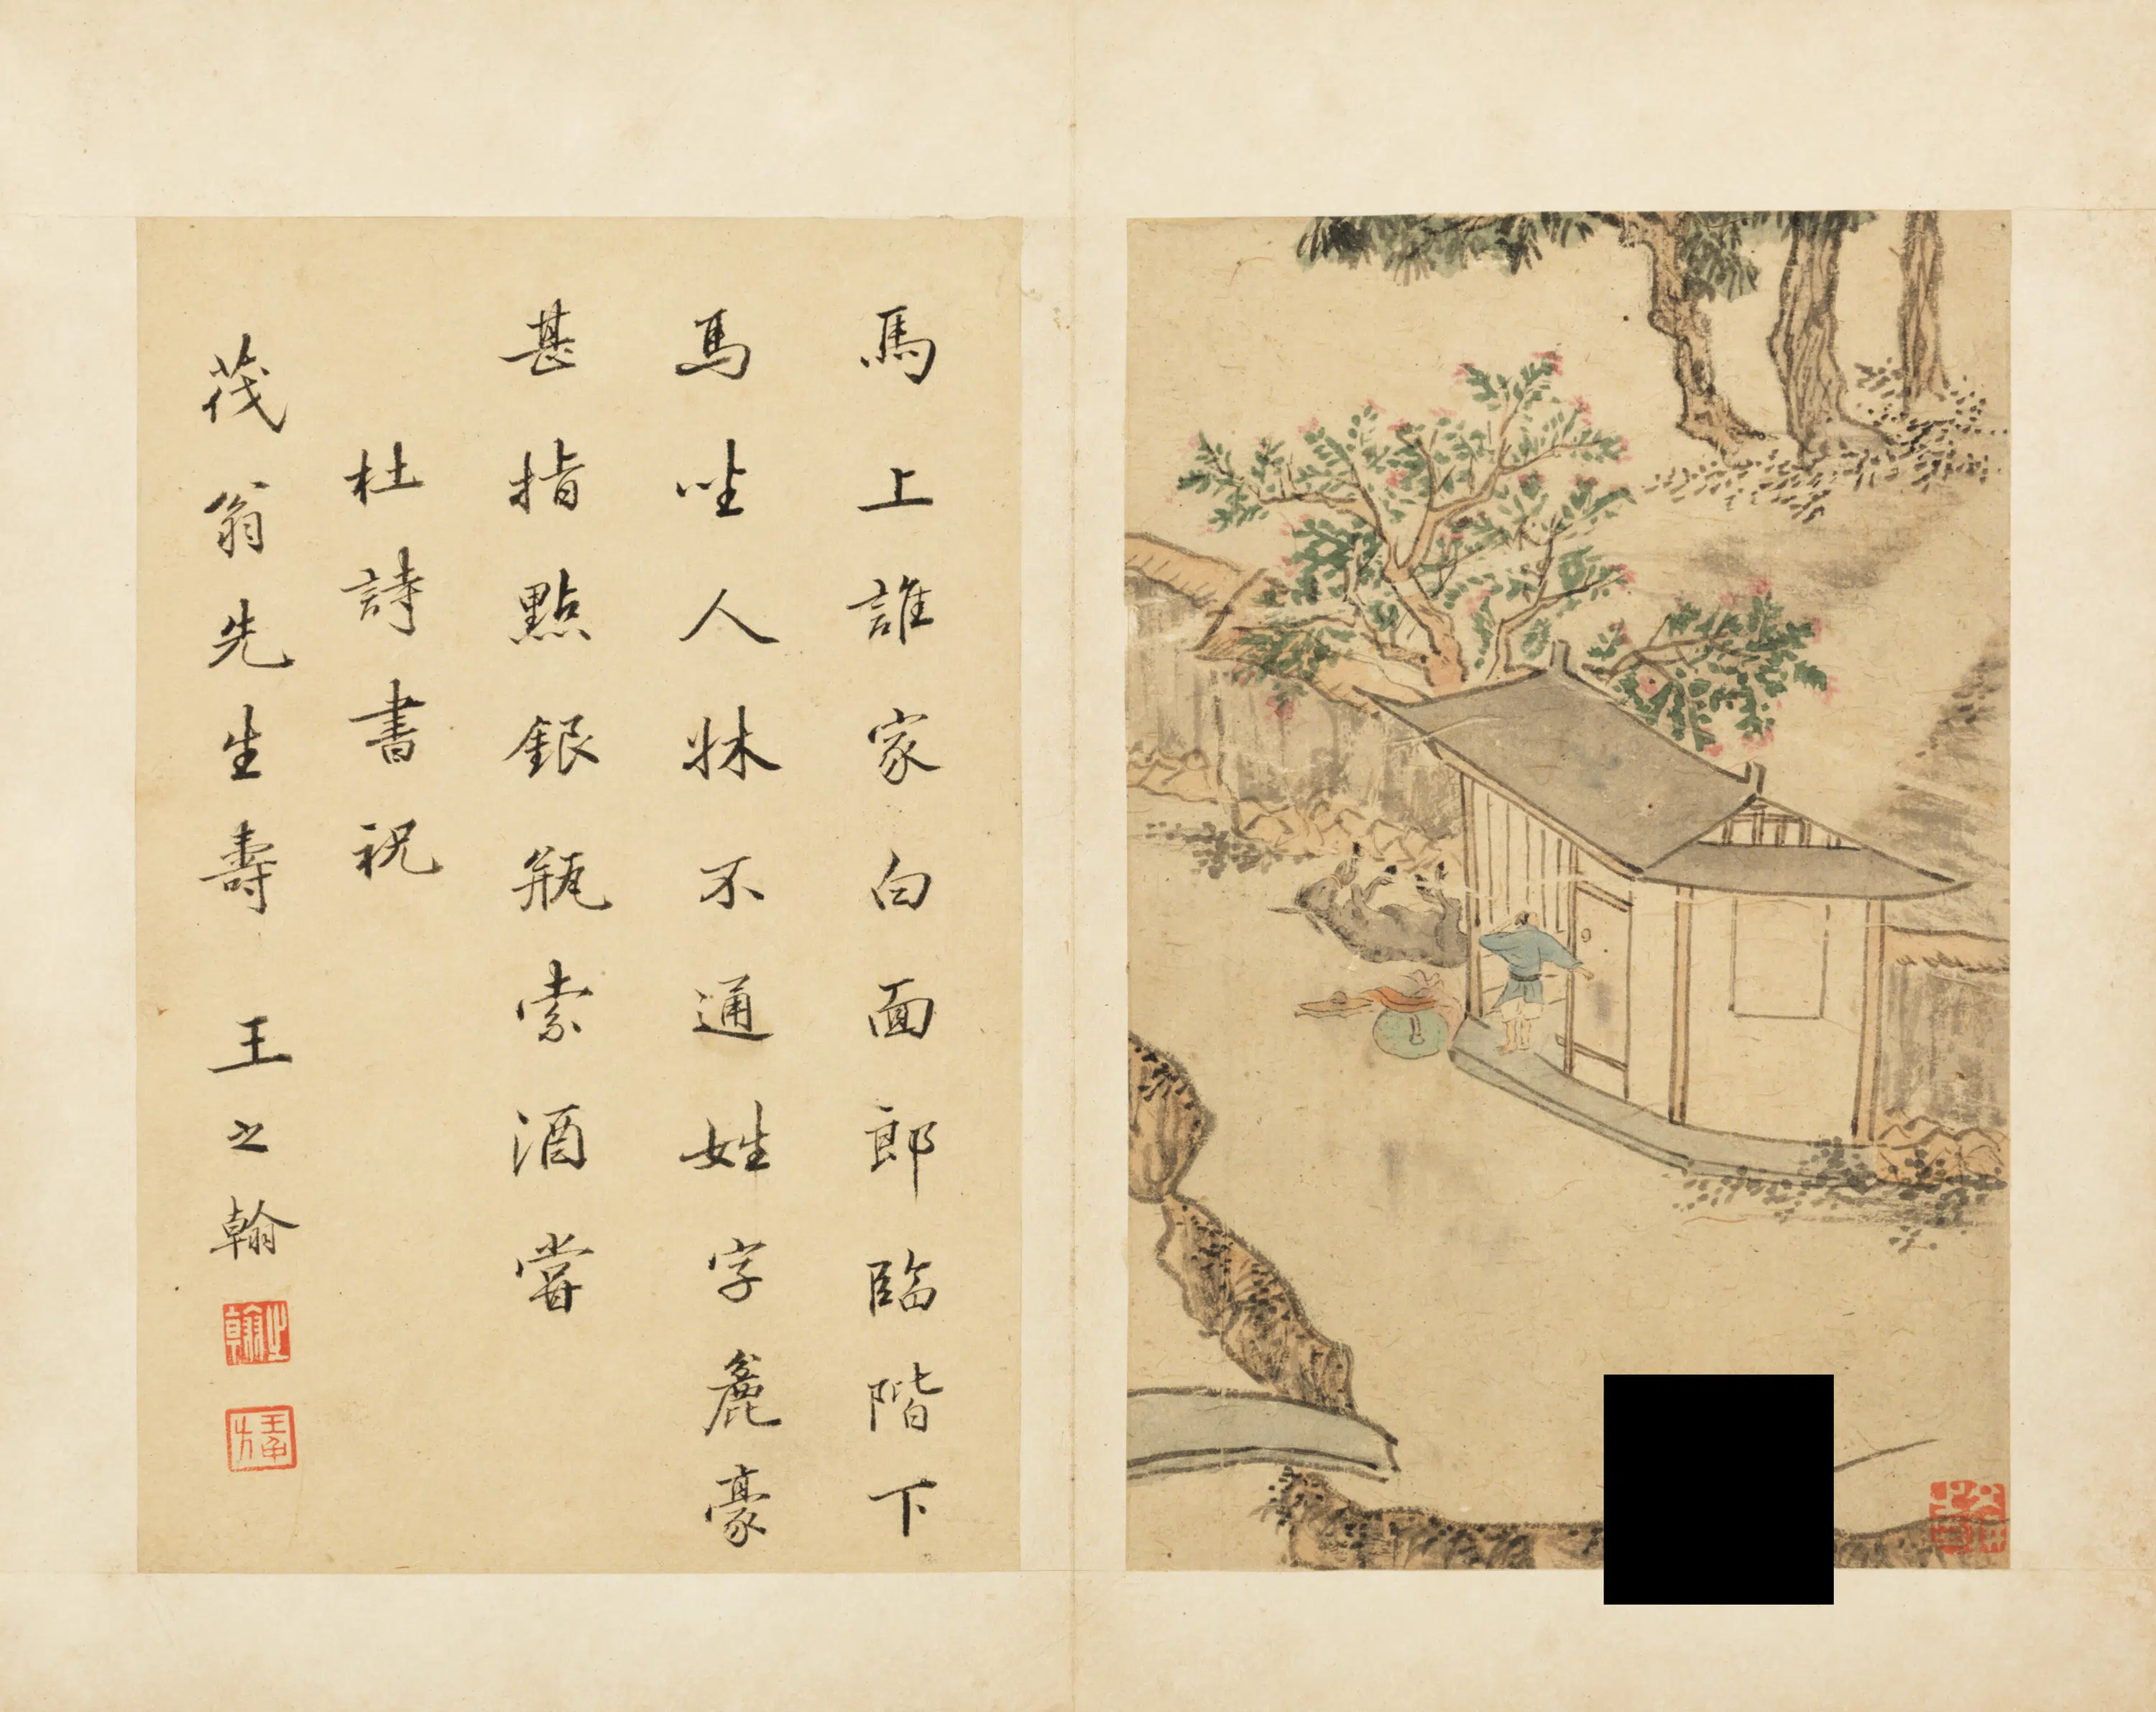 馬上誰家白面郎臨階下
馬坐人牀不通姓字麄豪
甚指點銀瓶索酒嘗
杜詩書祝
茂翁先生壽 王之翰
之翰